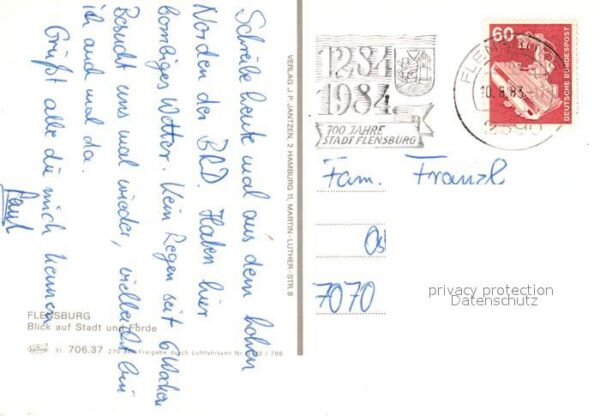 Schreibe heute mal aus dem hohen
Norden der BRD. Haben hier
bombiges Wetter. Kein Regen seit 6 Wochen
Besucht uns mal wieder, vielleicht bin
ich auch mal da.
Grüßt alle die mich kennen
Paul
FLENSBURG
Blick auf Stadt und Förde
31 706.37 270
Freigabe durch Luftfahrtamt
VERLAG J. P. JANTZEN, 2 HAMBURG 11, MARTIN-LUTHER-STR. 8
1284
1984
700 JAHRE
STADT FLENSBURG
10.8.83
2390
60
DEUTSCHE BUNDESPOST
Fam. Franzl
7070
privacy protection
Datenschutz